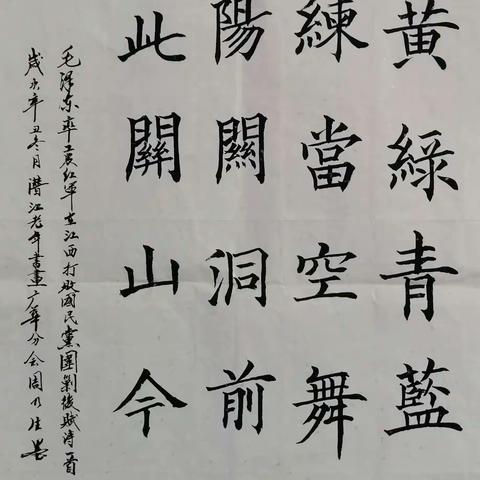 黄綠青藍
練當空舞
陽關洞前
此關山今
毛澤东率工農红军在江西打败國民黨圍剿後赋诗一首
歲次辛丑冬月潛江老年書畫广華分会周